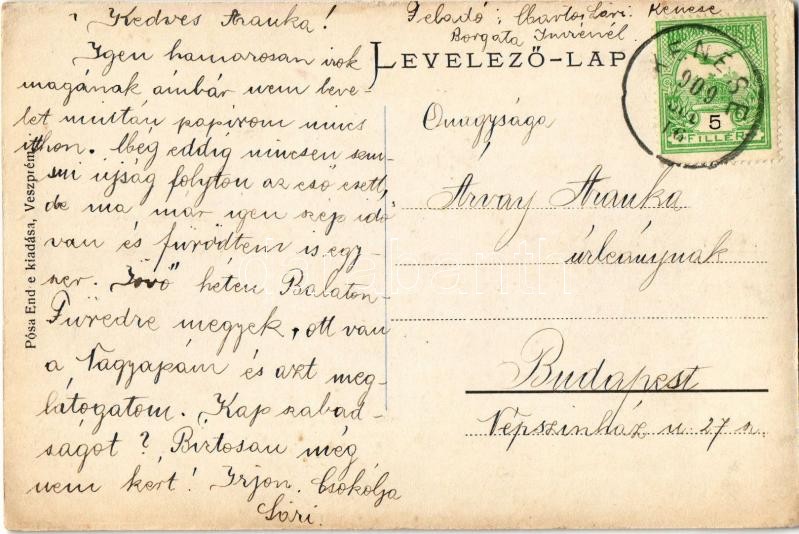 Kedves Aranka!
Igen hamarosan irok
magának ámbár nem leve-
let miután papirom nincs
itthon. Meg eddig nincsen sem-
mi ujság folyton az eső esett,
de ma már igen szép idő
van és fürödtem is egy-
szer. Jövő héten Balaton-
Füredre megyek, ott van
a Nagyapám és azt meg-
látogatom. Kap szabad-
ságot? Biztosan még
nem kért! Irjon. Csókolja
Sári.
Feladó: Sári. Kenese
Borgata Imrénél.
LEVELEZŐ-LAP
MAGYAR POSTA
5
FILLÉR
KENESE
909
Őnagysága
Árvay Aranka
úrleánynak
Budapest
Népszinház u. 27 sz.
Pósa End e kiadása, Veszprém